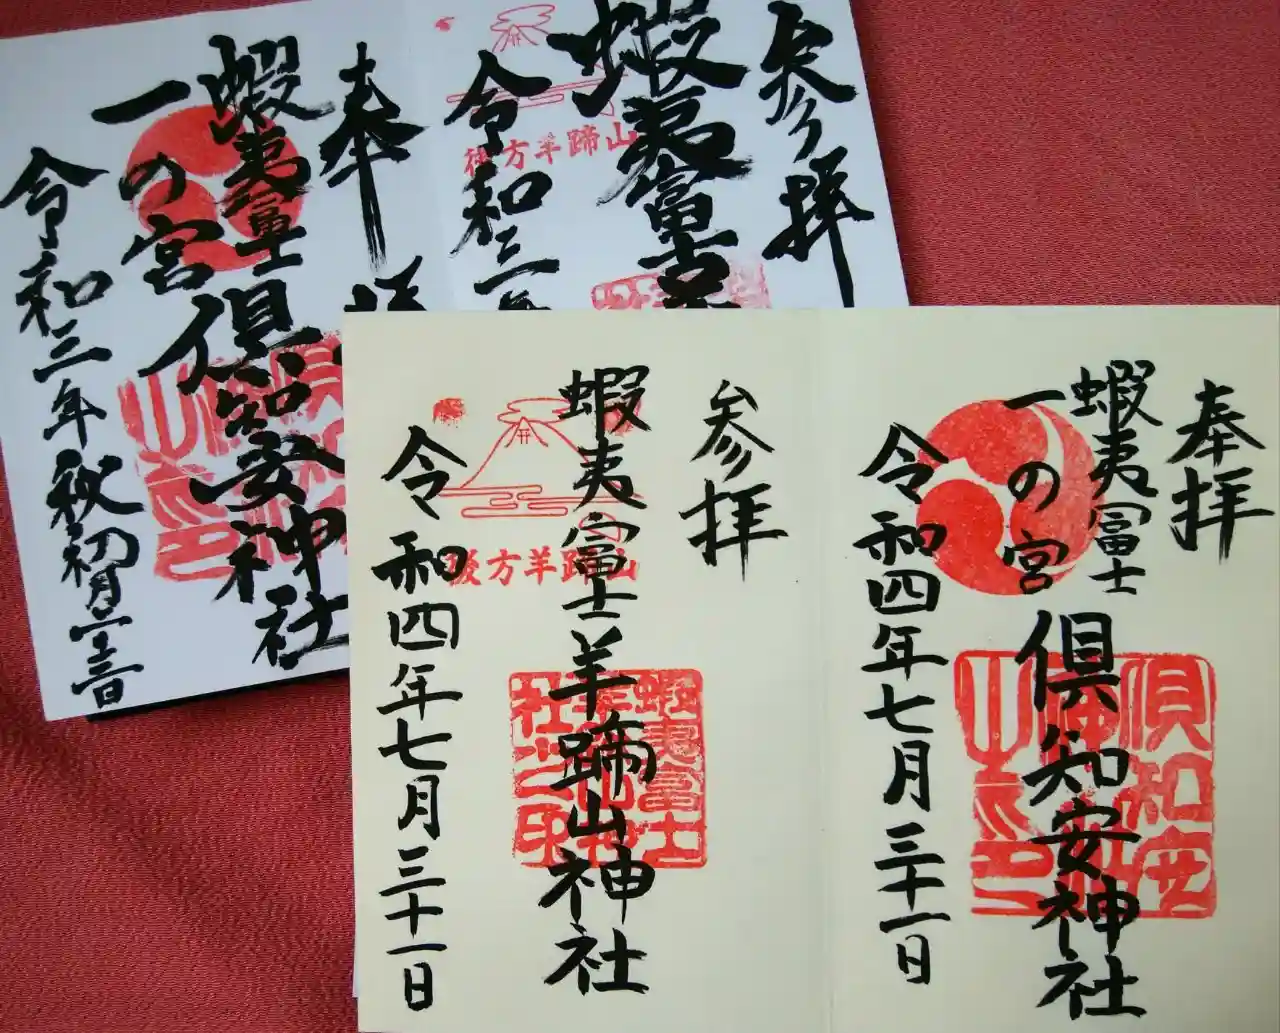 奉拝
蝦夷富士
一の宮
倶知安神社
令和四年七月三十一日
参拝
蝦夷富士羊蹄山神社
山蹄羊方後
令和四年七月三十一日
蝦夷富士
参拝
蝦夷富士
山蹄羊方後
令和三年
奉拝
蝦夷富士
一の宮
倶知安神社
令和三年